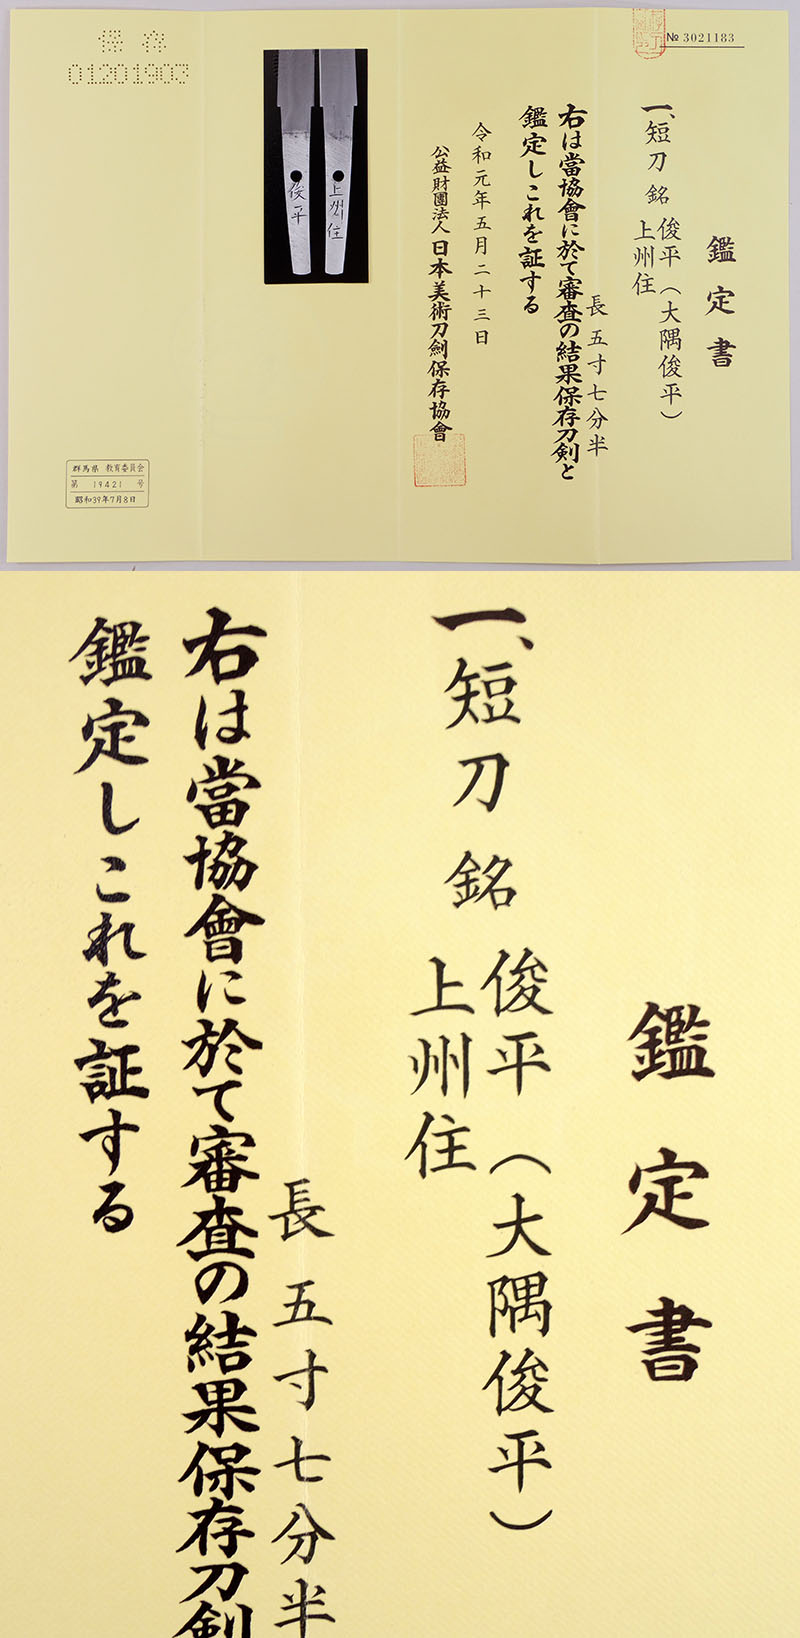 № 3021183
鑑定書
一、短刀 銘 俊平(大隅俊平)
上州住
長五寸七分半
右は當協會に於て審査の結果保存刀剣と
鑑定しこれを証する
令和元年五月二十三日
公益財團法人 日本美術刀劍保存協會
上州住
俊平
保存
01201903
群馬県 教育委員会
第 19421 号
昭和39年7月8日
鑑定書
一、短刀 銘 俊平(大隅俊平)
上州住
長五寸七分半
右は當協會に於て審査の結果保存刀剣
鑑定しこれを証する